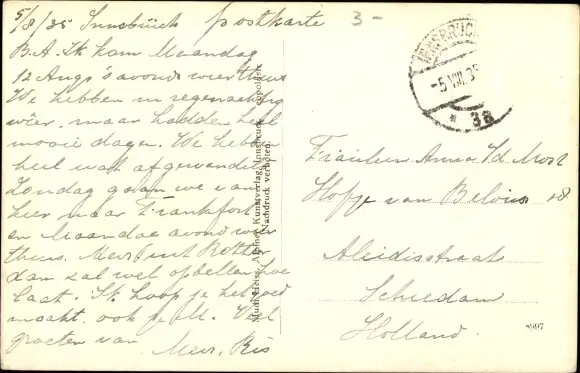 5/8/35 Innsbrück postkarte 3-
B.A. Ik kom Maandag
12 Aug's avond weer thuis
We hebben nu regenachtig
weer, maar hadden heel
mooie dagen. We hebben
heel wat afgewandeld
Zondag gaan we van
hier naar Frankfort
en Maandag avond weer
thuis. Mevr. uit Rotter
dam zal wel opbellen hoe
laat. Ik hoop je het goed
maakt. ook je M. Veel
groeten van
Mevr. Ris
Much Heiss, Alpiner Kunstverlag, Innsbruck
Nachdruck verboten.
INNSBRUCK
-5.VIII.35
* 3a
Fräulein Anna v/d Most
Hofje van Belois 18
Aleidisstraat
Schiedam
Holland.